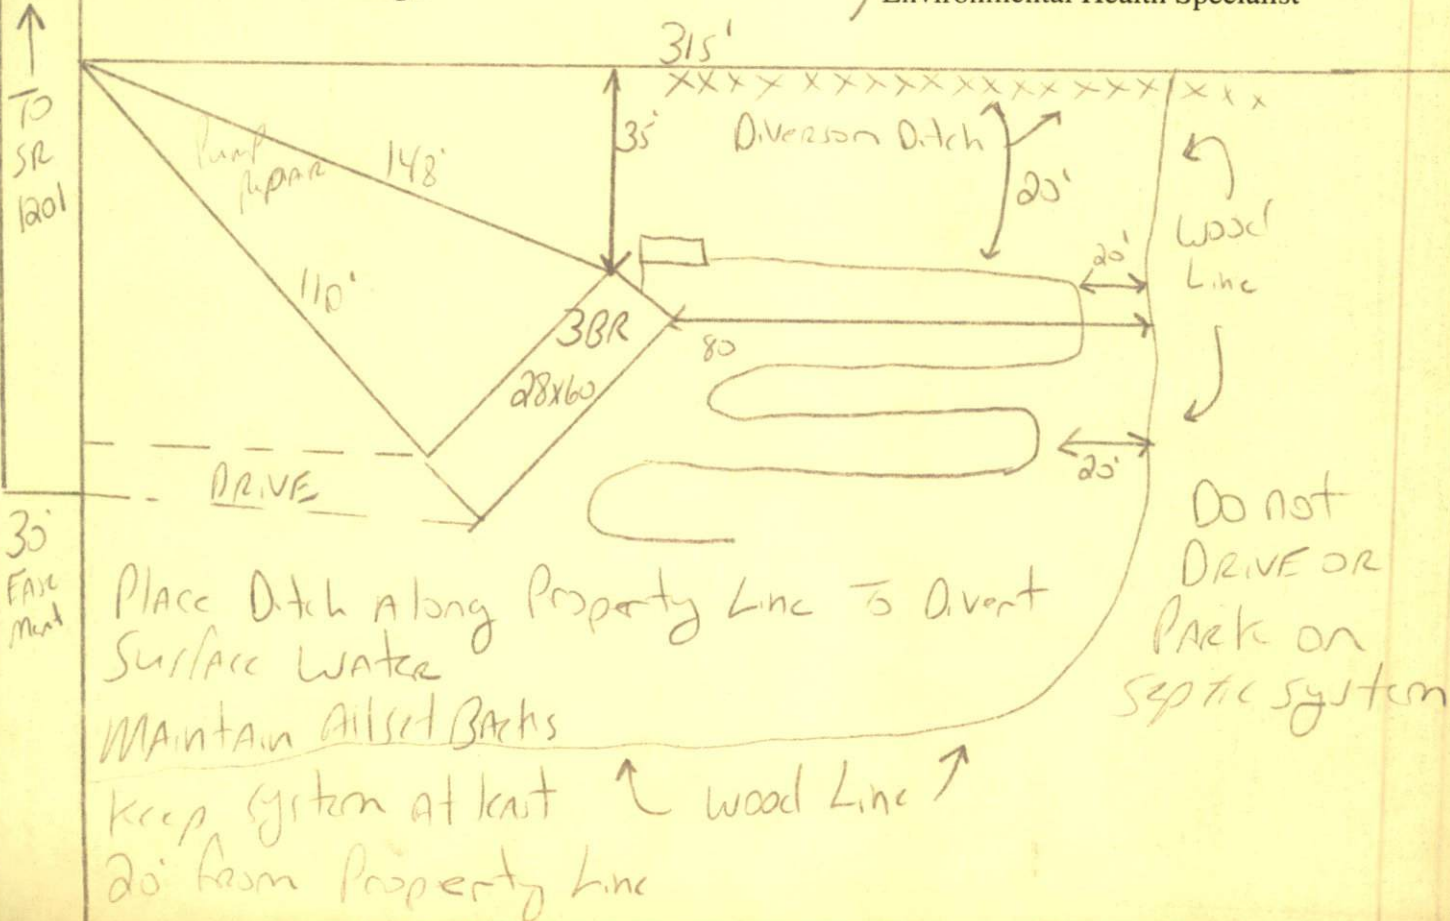 Environmental Health Specialist
315'
TO
SR
1201
Pump
Repair
148'
35'
Diverson Ditch
20'
Wood
Line
20'
110'
3BR
28x60
80
20'
DRIVE
30'
EASE
Ment
DO not
DRIVE OR
PARK on
Septic System
Place Ditch Along Property Line To Divert
Surface Water
MAintAin All set BAcks
Keep System At least
20' from Property Line
Wood Line